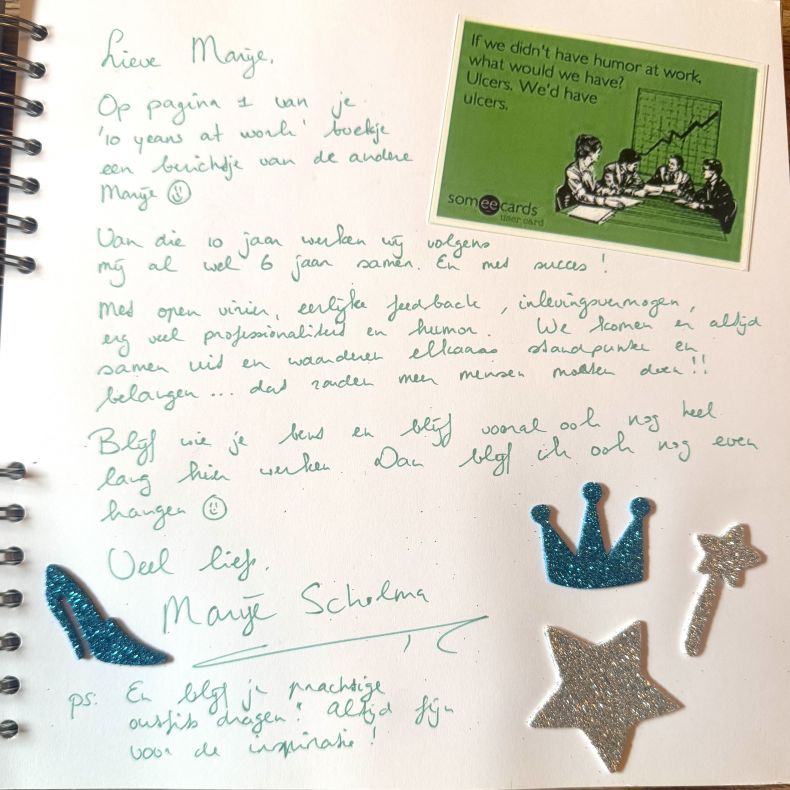 Lieve Marije,
If we didn't have humor at work,
what would we have?
Ulcers. We'd have
ulcers.
somee cards
user card
Op pagina 1 van je
'10 years at work' boekje
een berichtje van de andere
Marije ☺
Van die 10 jaar werken wij volgens
mij al wel 6 jaar samen. En met succes!
Met open vizier, eerlijke feedback, inlevingsvermogen,
erg veel professionaliteit en humor. We komen er altijd
samen uit en waarderen elkaars standpunten en
belangen... dat zouden meer mensen moeten doen!!
Blijf wie je bent en blijf vooral ook nog heel
lang hier werken. Dan blijf ik ook nog even
hangen ☺
Veel liefs,
Marije Scholma
ps: En blijf je prachtige
outfits dragen! Altijd fijn
voor de inspiratie!